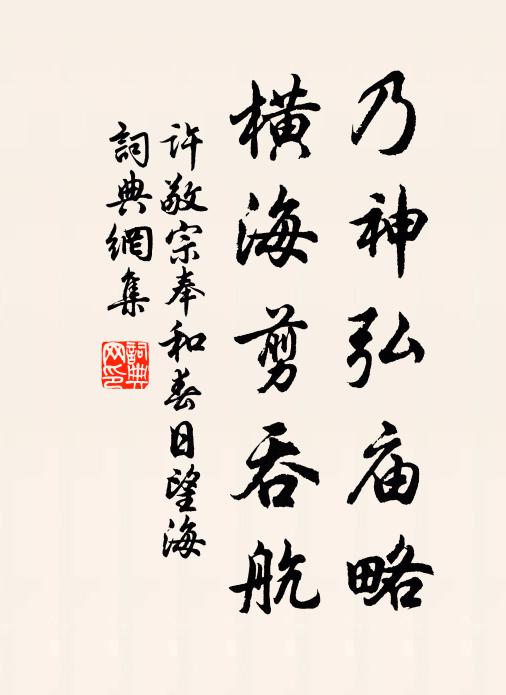 乃神弘庙略
横海剪吞航
许敬宗奉和春日望海
詞典網集
詞典网印